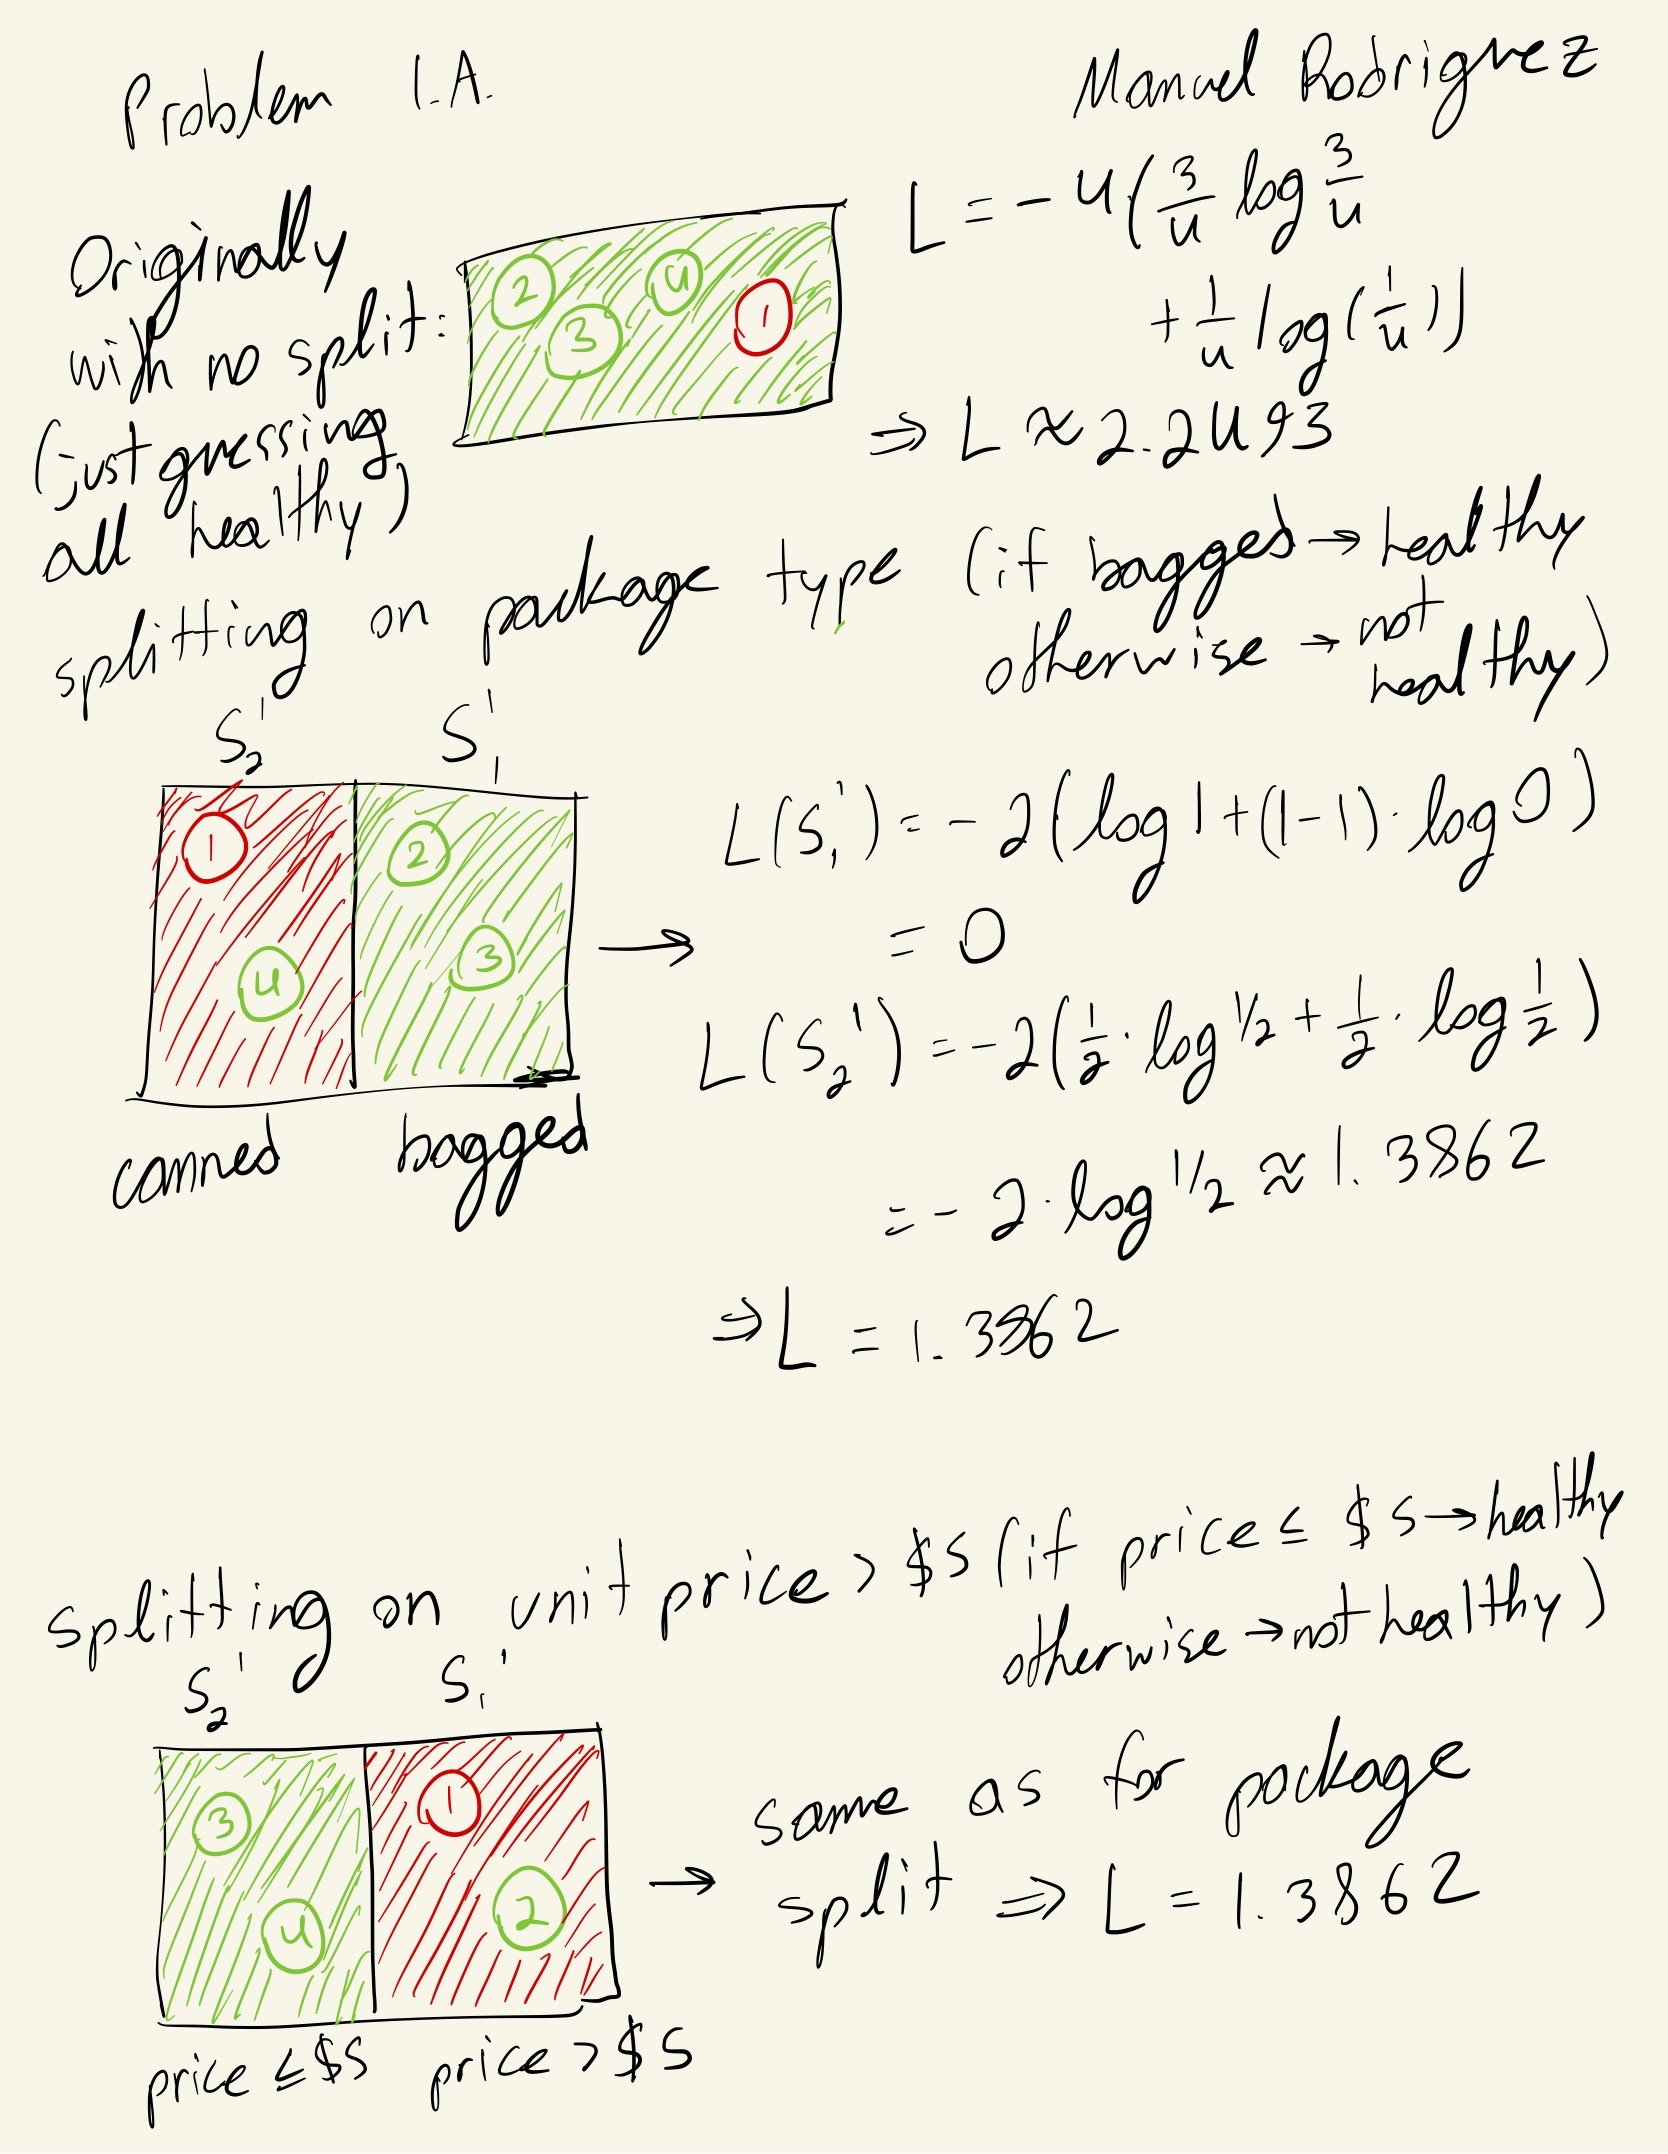 Problem 1.A.
Manuel Rodriguez
Originally
with no split:
(just guessing
all healthy)
2 3 4 1
L = -4(3/4 log 3/4
+ 1/4 log(1/4))
⇒ L ≈ 2.2493
splitting on package type (if bagged → healthy
otherwise → not
healthy)
S₂' S₁'
1 2
4 3
canned bagged
→ L(S₁') = -2(log 1 + (1-1)·log 0)
= 0
L(S₂') = -2(1/2·log 1/2 + 1/2·log 1/2)
= -2·log 1/2 ≈ 1.3862
⇒ L = 1.3862
splitting on unit price > $5 (if price ≤ $5 → healthy
otherwise → not healthy)
S₂' S₁'
3 1
4 2
price ≤ $5 price > $5
→ same as for package
split ⇒ L = 1.3862